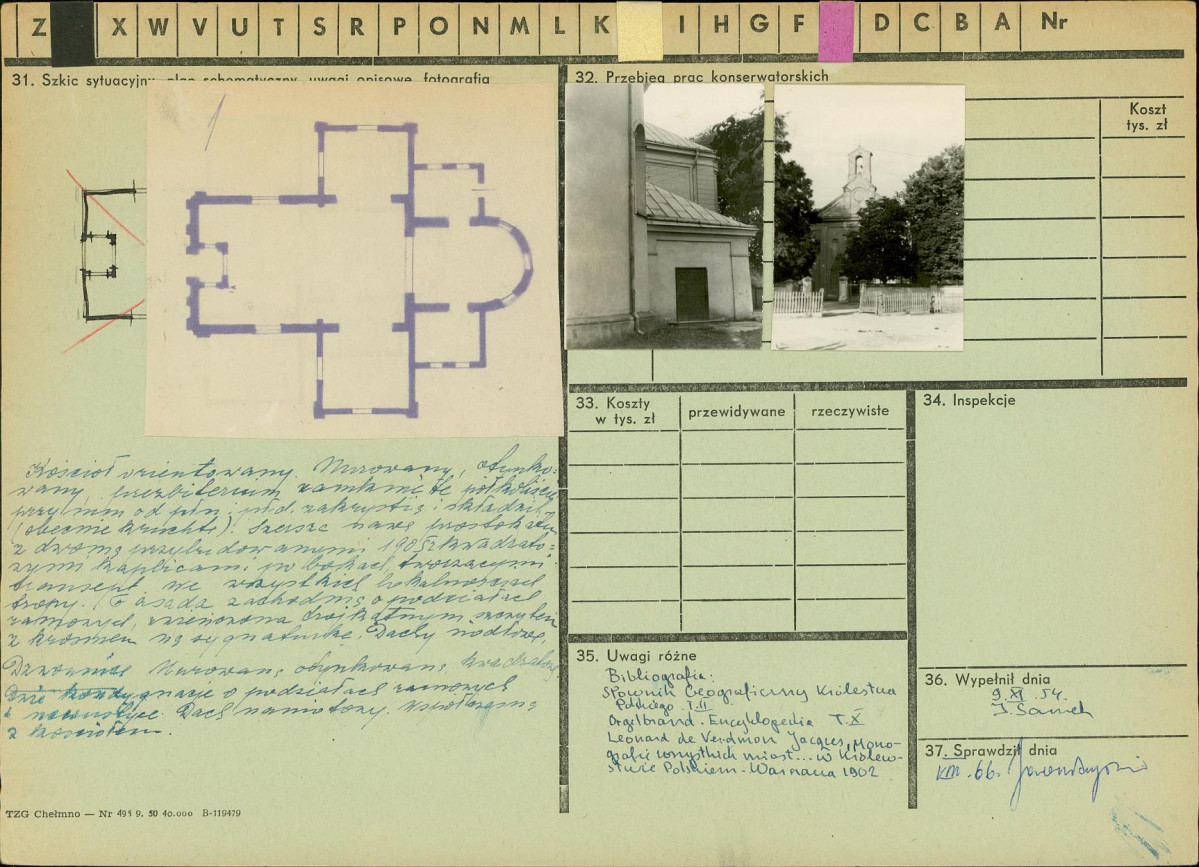 Z X W V U T S R P O N M L K I H G F D C B A Nr
31. Szkic sytuacyjny, plan schematyczny, uwagi opisowe, fotografia
32. Przebieg prac konserwatorskich
Koszt
tys. zł
33. Koszty
w tys. zł
przewidywane
rzeczywiste
34. Inspekcje
Kościół orientowany. Murowany, otynko-
wany, prezbiterium zamknięte półkoliście
przy nim od płn. i płd. zakrystia i składzik
(obecnie kruchta). Szersza nawa prostokątna
z dwoma przybudowanymi 1905 kwadrato-
wymi kaplicami po bokach, tworzącymi
transept we wszystkich lokalnościach
stropy. Fasada zachodnia o podziałach
ramowych, zwieńczona trójkątnym szczytem
z na sygnaturkę. Dachy
Dzwonnica Murowana, otynkowana, kwadratowa
o podziałach ramowych
i Dach namiotowy.
z kościołem.
35. Uwagi różne
Bibliografia:
Słownik Geograficzny Królestwa
Polskiego. T.II
Orgelbrand. Encyklopedia T.X
Leonard de Verdmon Jacques, Mono-
grafie wszystkich miast... w Królew-
stwie Polskiem. Warszawa 1902
36. Wypełnił dnia
9.XI.54.
37. Sprawdził dnia
VIII.66.
TZG Chełmno — Nr 495 9. 50 40.000 B-119479